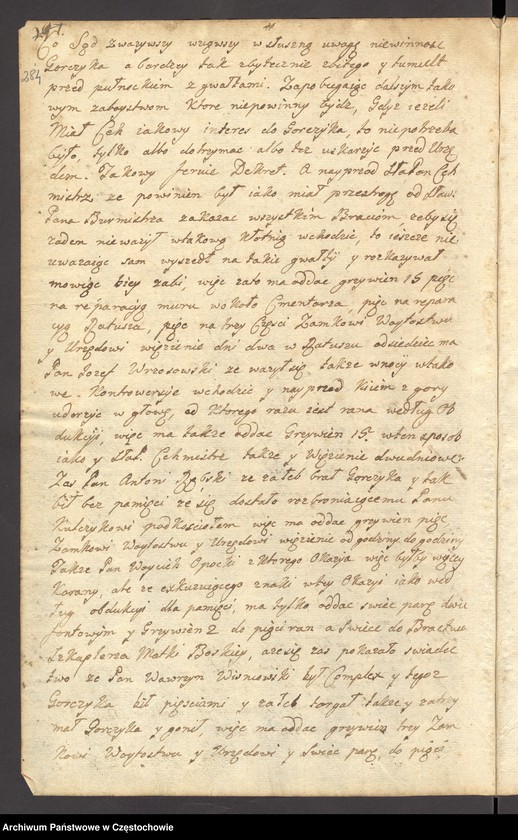 284
Co Sąd zwazywszy wziąwszy w słuszną uwagę niewinnosc
Gorczyka a bardziey tak zbytecznie zbitego y tumult
przed pułnockiem z gwałtami. Zapobiegaiąc dalszym tako
wym zaboystwom ktore niepowinny bydz, Gdyz iezeli
Miał Cech iakowy interes do Gorczyka, to niepotrzeba
było, tylko albo dotrzymac albo tez uskarzyc przed Urzę
dem. Takowy feruie Dekret. A nayprzod Cech
mistrz, ze powinien był iako miał przestrogę od Sław.
Pana Burmistrza zakazac wszystkim Braciom zeby się
zaden niewazył wtakową kłotnią wchodzic, to ieszcze nie
uwazaiąc sam wyszedł na takie gwałty y rozkazywał
mowiąc biey zabi, więc zato ma oddac grzywien 15 pięc
na reparacyą muru wokoło Cmentarza, pięc na repara
cyą Ratusza, pięc na trzy Części Zamkowi Woytostwu
y Urzędowi więzienie dni dwa w Ratuszu odsiedziec ma
Pan Jozef Wrzosowski ze wazył się takze wnocy wtako
we Kontrowersye wchodzic y nayprzod Kiiem z gory
uderzyc w głowę, od ktorego razu iest rana według Ob
dukcyi, więc ma takze oddac Grzywien 15. wten sposob
iako y Cechmistrz takze y Więzienie dwudniowe.
Zas Pan Antoni ze załeb brał Gorczyka y tak
bił bez pamięci ze się dostało rozbraniaiącemu Panu
Kulczykowi pod kosciołem więc ma oddac grzywien pięc
Zamkowi Woytostwu y Urzędowi więzienie od godziny do godziny
Takze Pan Woycich Opocki z ktorego Okazyi więc byłby więcey
Karany, ale ze exkuzuiącego znaki wtey Okazyi iako wed
ług obdukcyi dla pamięci, ma tylko oddac swiec parę dwu
funtowym y Grzywien 2 do pięci ran a Swiece do Bractwa
Szkaplerza Matki Boskiey, a ze się zas pokazało swiadec
two ze Pan Wawrzyn Wisniowski był Complex y tegoz
Gorczyka bił pięsciami y załeb targał takze y zatrzy
mał Gorczyka y gonił, więc ma oddac grzywien trzy Zam
kowi Woytostwu y Urzędowi y swiec parę, do pięci
Archiwum Państwowe w Częstochowie